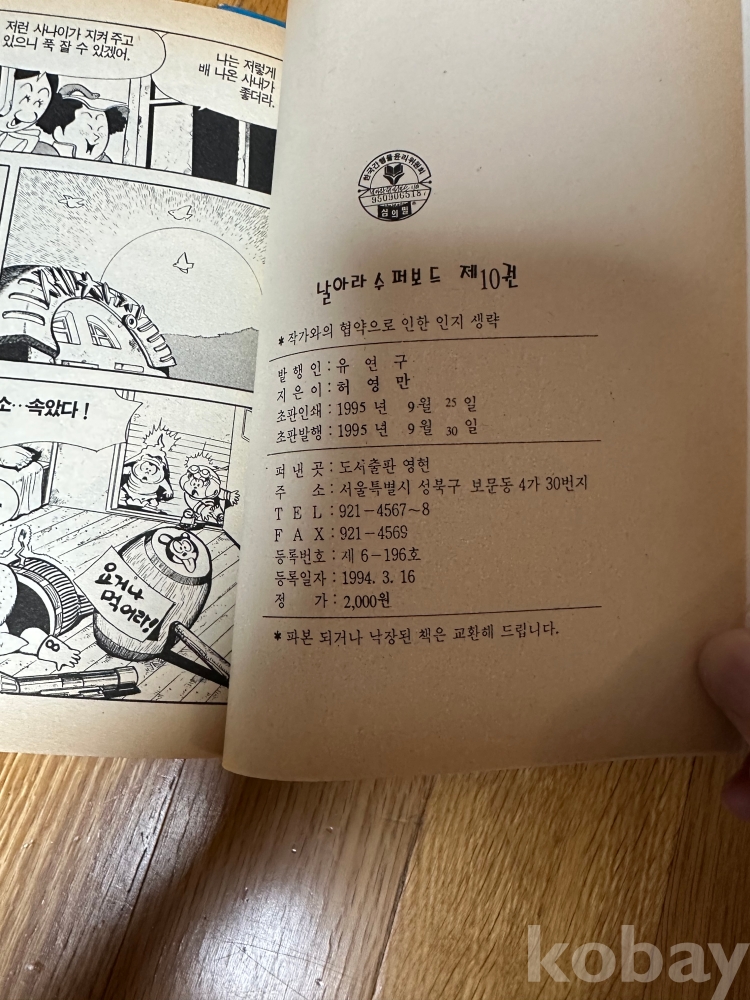 저런 사나이가 지켜 주고
있으니 푹 잘 수 있겠어.
나는 저렇게
배 나온 사내가
좋더라.
소‥속았다!
요거나
먹어라!
8
한국간행물윤리위원회
950906518
심의필
날아라 수퍼보드 제10권
*작가와의 협약으로 인한 인지 생략
발 행 인 : 유 연 구
지 은 이 : 허 영 만
초판인쇄 : 1995 년 9 월 25 일
초판발행 : 1995 년 9 월 30 일
펴 낸 곳 : 도서출판 영헌
주 소 : 서울특별시 성북구 보문동 4가 30번지
T E L : 921-4567~8
F A X : 921-4569
등록번호 : 제 6-196호
등록일자 : 1994. 3. 16
정 가 : 2,000원
*파본 되거나 낙장된 책은 교환해 드립니다.
kobay